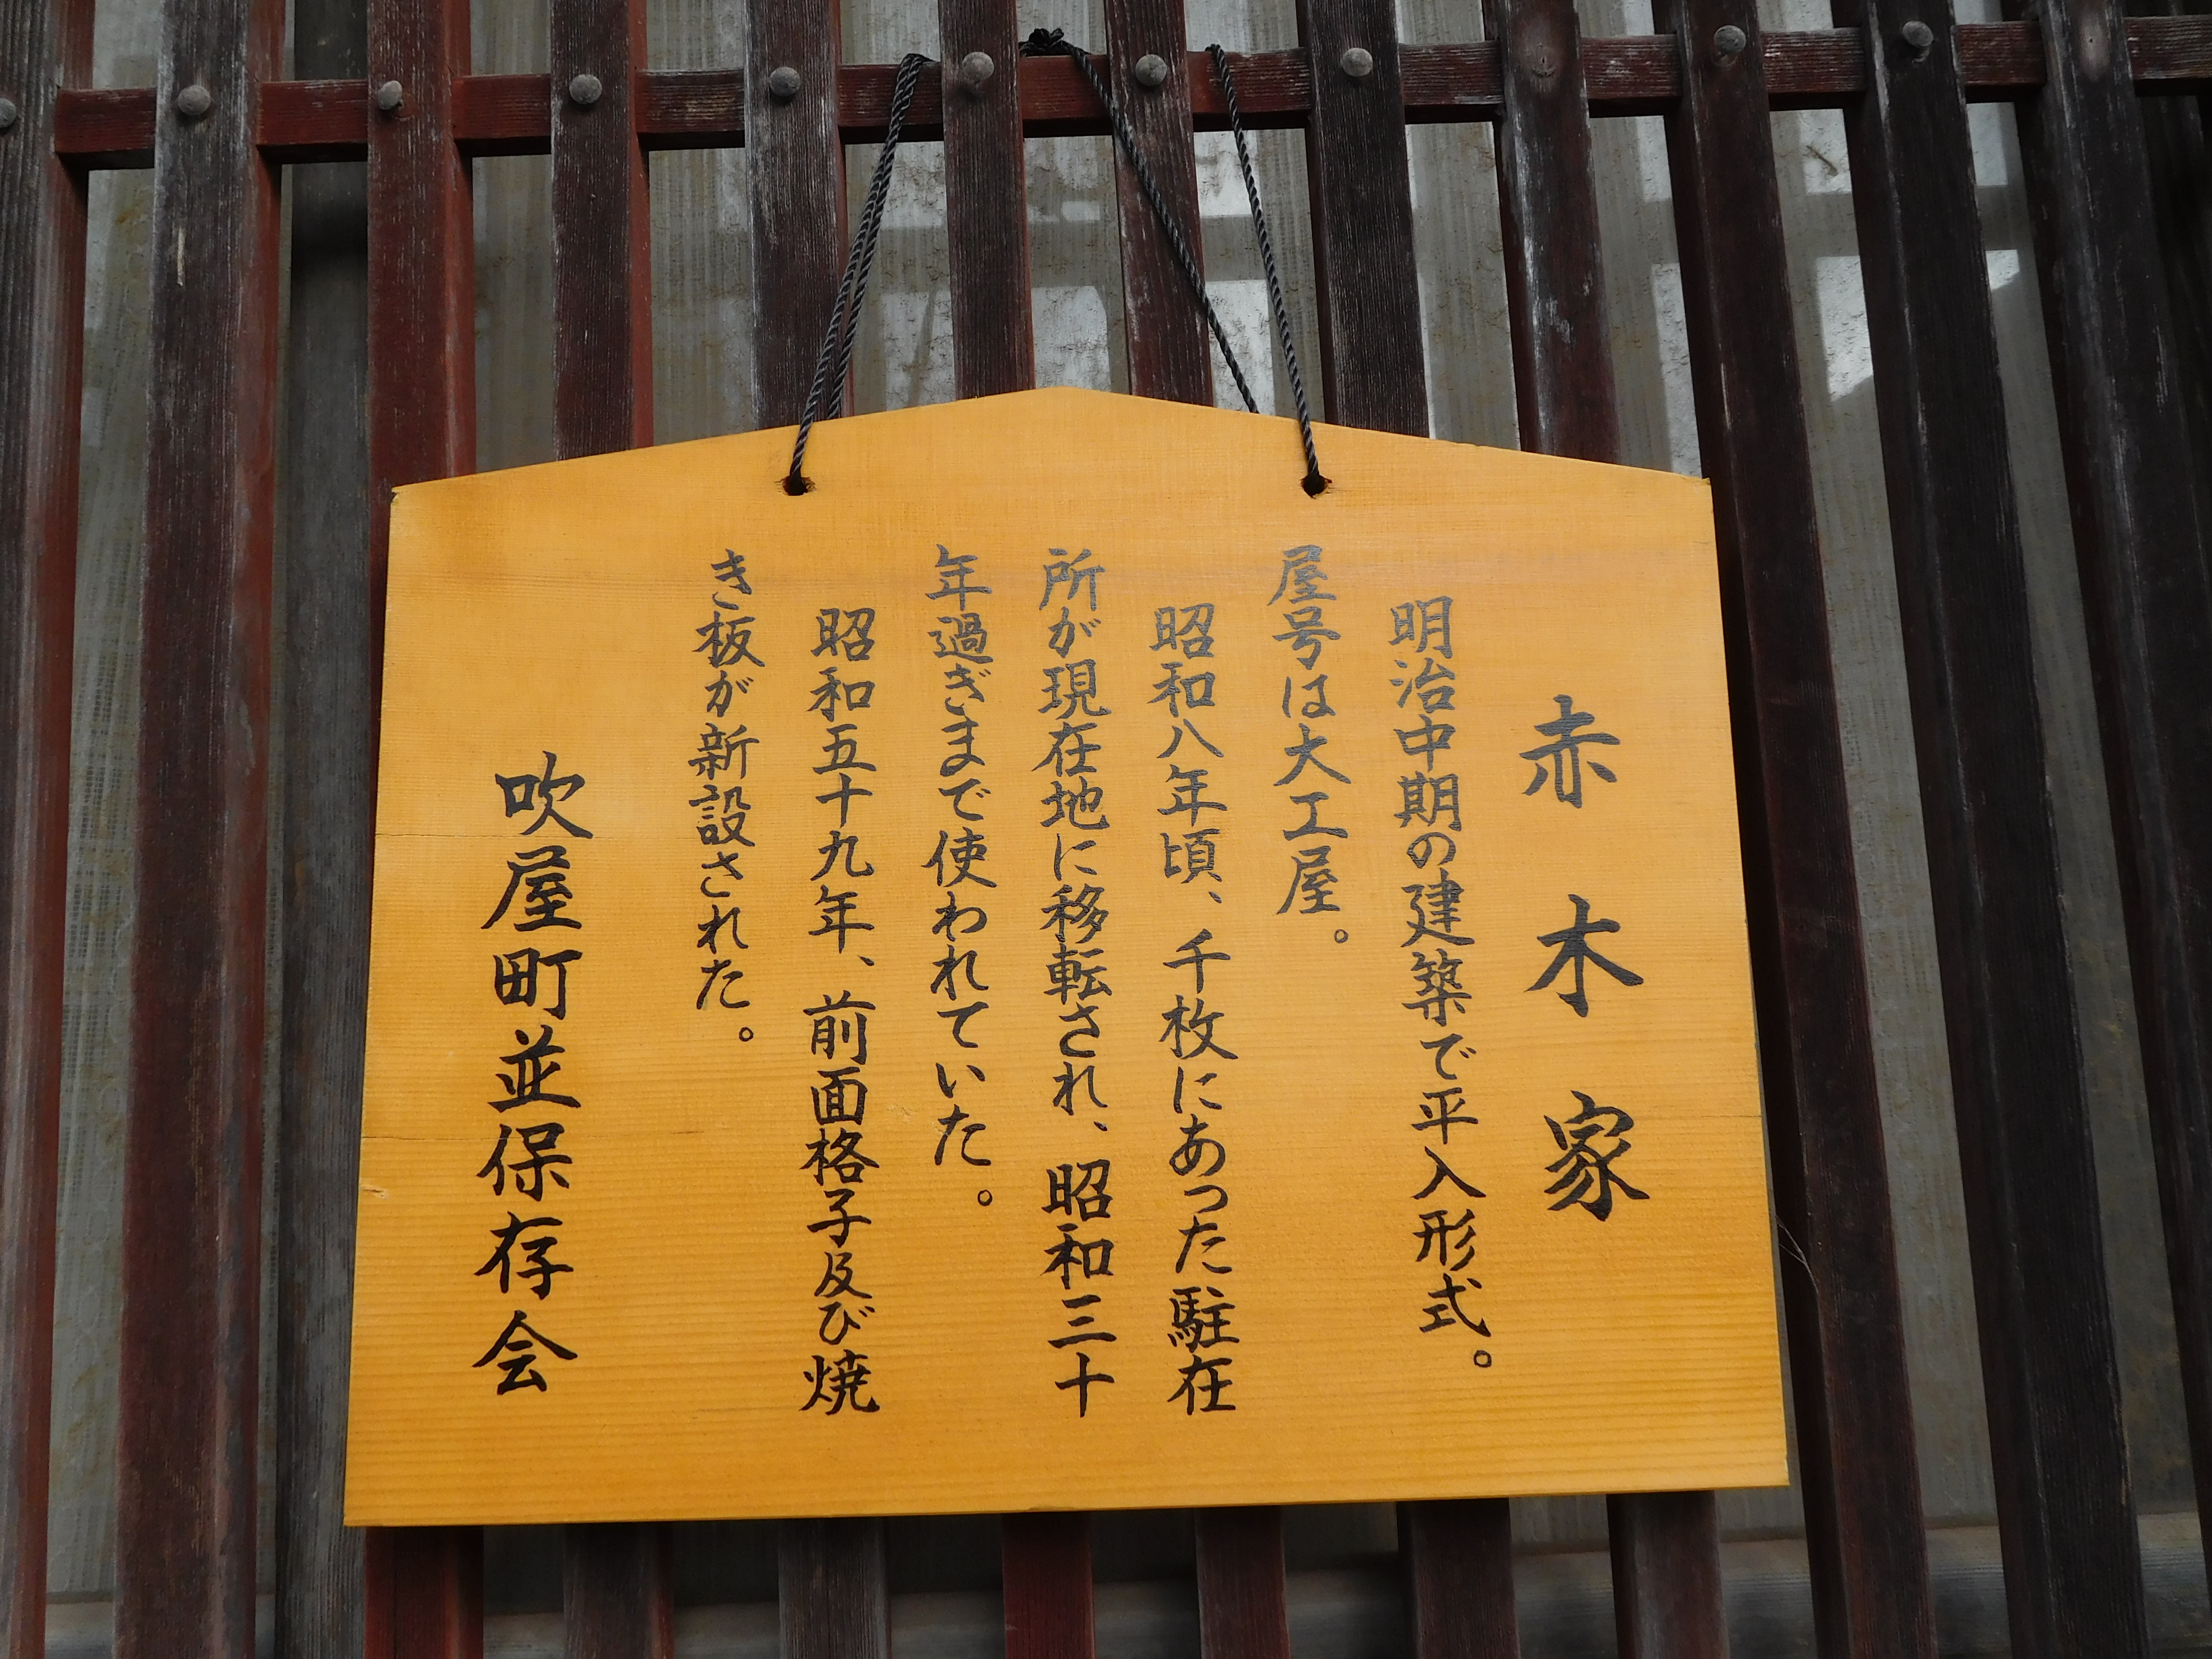 赤木家
明治中期の建築で平入形式。
屋号は大工屋。
昭和八年頃、千枚にあった駐在
所が現在地に移転され、昭和三十
年過ぎまで使われていた。
昭和五十九年、前面格子及び焼
き板が新設された。
吹屋町並保存会